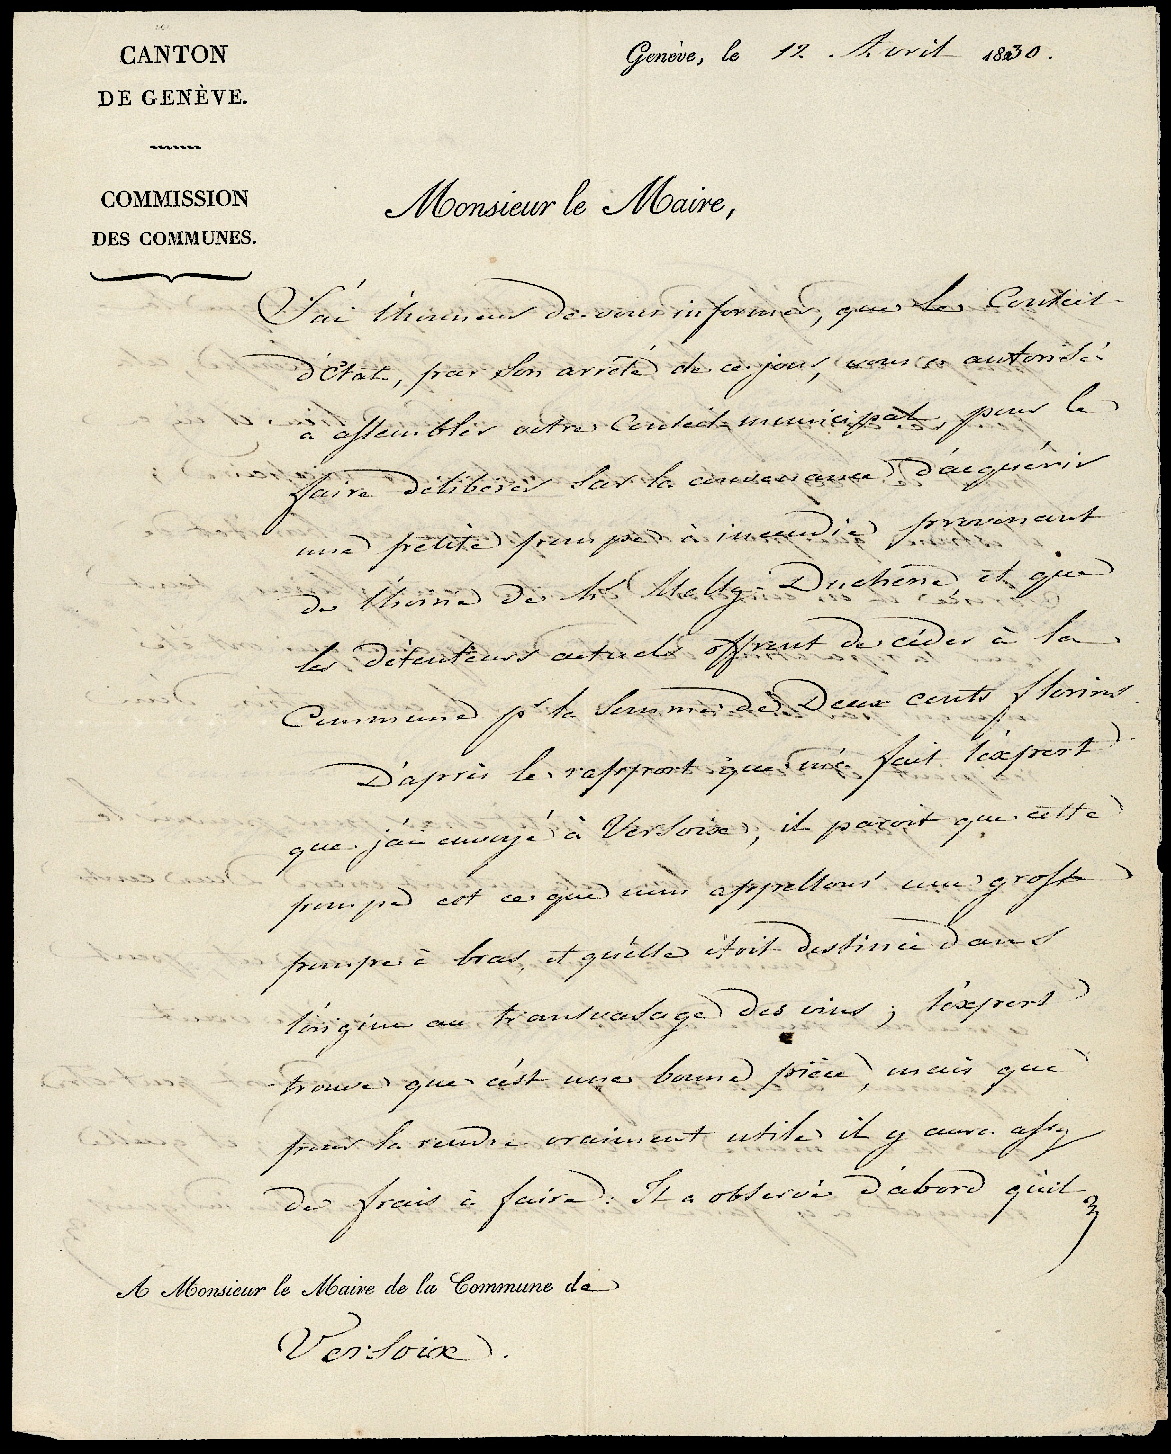 CANTON
DE GENÈVE.
COMMISSION
DES COMMUNES.
Genève, le 12 Avril 1830.
Monsieur le Maire,
J'ai l'honneur de vous informer, que le Conseil
d'Etat, par son arrêté de ce jour, vous a autorisé
à assembler votre Conseil municipal, pour le
faire délibérer sur la convenance d'acquérir
une petite pompe à incendie provenant
de l'hoirie de Mr Melly-Duchêne et que
les détenteurs actuels offrent de céder à la
Commune pr la somme de Deux cents florins
D'après le rapport que m'a fait l'expert
que j'ai envoyé à Versoix, il paroit que cette
pompe est ce que nous appellons une grosse
pompe à bras, et qu'elle étoit destinée dans
l'origine au transvasage des vins; l'expert
trouve que c'est une bonne pièce, mais que
pour la rendre vraiment utile il y aura assez
de frais à faire: Il a observé d'abord qu'il
A Monsieur le Maire de la Commune de
Versoix.